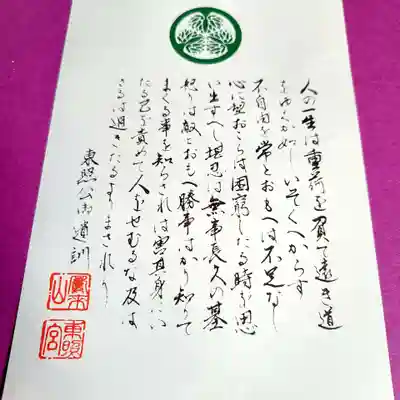 人の一生は重荷を負て遠き道
をゆくが如しいそぐへからす
不自由を常とおもへは不足なし
心に望おこらは困窮したる時を思
い出すへし堪忍は無事長久の基
怒りは敵とおもへ勝事はかり知りて
まくる事を知らされは害其身にい
たる己を責めて人をせむるな及は
さるは過きたるよりまされり
東照公御遺訓
東照
宮